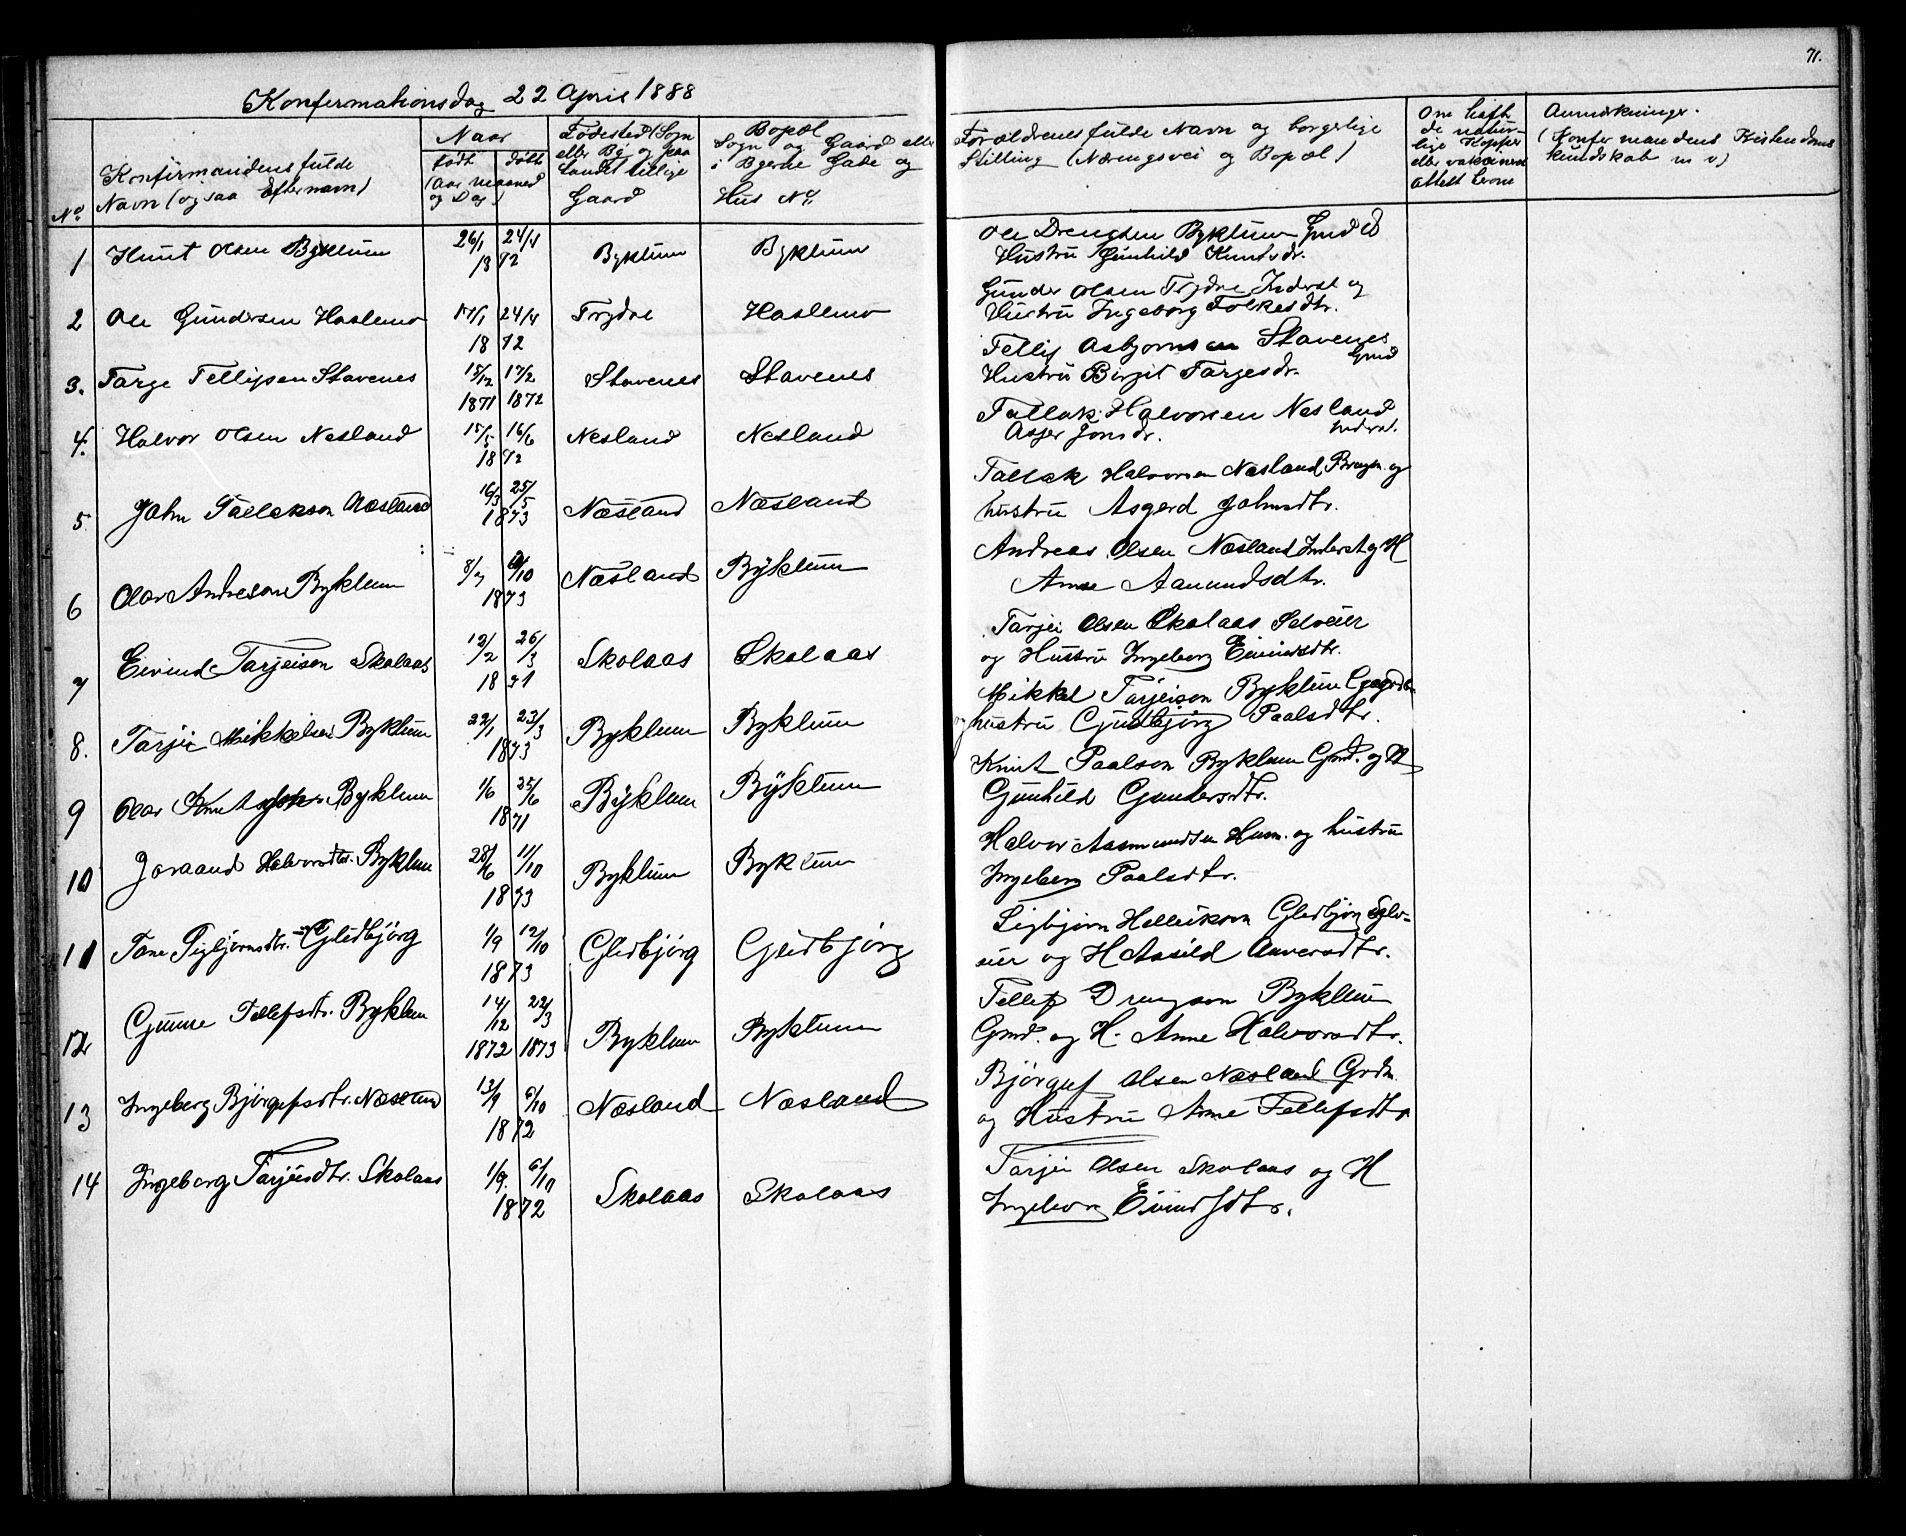 71.
Konfirmationsdag 22 April 1888
No
Konfirmandens fulde
Navn (ogsaa Efternavn)
Naar
født døbt
(Aar Maaned
og Dag)
Fødested (Sogn
eller By og paa
Landet tillige
Gaard
Bopæl
Sogn og Gaard eller
i Byerne Gade og
Hus No
Forældrenes fulde Navn og borgerlige
Stilling (Næringsvei og Bopæl)
Om havt
de naturlige Kopper
eller vaksineret
Attest derom
Anmærkninger.
(Konfirmandens Kristendoms
kundskab m v)
1 Knut Olsen Byklum 26/1 24/4 1872 Byklum Byklum
Ole Drengsen Byklum Gmd &
Hustru Gunhild Knutsdr.
2 Ole Gundersen Haslemo 17/1 24/4 1872 Trydre Haslemo
Gunder Olsen Trydre Inderst og
Hustru Ingeborg Folkesdtr.
3. Targe Tellefsen Stavenes 15/12 17/2 1871 1872 Stavenes Stavenes
Tellef Asbjornsen Stavenes
Gmd
Hustru Birgit Targesdr.
4. Halvor Olsen Nesland 15/5 16/6 1872 Nesland Nesland
Tallak Halvorsen Nesland
Asger Jonsdr. Inderst.
5 John Tallakson Næsland 16/3 25/5 1873 Næsland Næsland
Tallak Halvorsen Næsland Brugm. og
hustru Asgerd Johnsdtr.
6 Olav Andreson Byklum 8/7 /10 1873 Næsland Byklum
Andreas Olsen Næsland Inderst og H
Anne Aamundsdtr.
7 Eivind Tarjeison Skolaas 12/2 26/3 1871 Skolaas Skolaas
Tarjei Olsen Skolaas Selveier
og Hustru Ingeborg Eivindsdtr.
8. Tarjei Mikkelsen Byklum 22/1 23/3 1873 Byklum Byklum
Mikkel Tarjeison Byklum
og hustru Gudbjørg Paalsdtr.
9 Olav Byklum 1/6 25/6 1871 Byklum Byklum
Knut Paalson Byklum Gmd. og H
Gunhild Gundersdtr.
10 Joraand Halvorsdtr. Byklum 28/6 11/10 1873 Byklum Byklum
Halvor Aasmundsen Husm. og hustru
Ingeborg Paalsdtr.
11 Tone Sigbjørnsdtr. Glidbjörg 1/9 12/10 1873 Glidbjörg Glidbjörg
Sigbjørn Hellikson Glidbjörg Selv-
eier og H Aasild Anversdtr.
12 Gunne Tellefsdtr. Byklum 14/12 22/3 1872 1873 Byklum Byklum
Tellef Drengson Byklum
Gmd. og H. Anne Halvorsdtr.
13 Ingeborg Bjørgufsdtr. Næsland 13/9 6/10 1872 Næsland Næsland
Bjørguf Olsen Næsland Grdm
og Hustru Anne Tellefsdtr
14 Ingeborg Tarjeisdtr. Skolaas 1/9. 6/10 1872 Skolaas Skolaas
Tarjei Olsen Skolaas og H
Ingeborg Eivindsdtr.